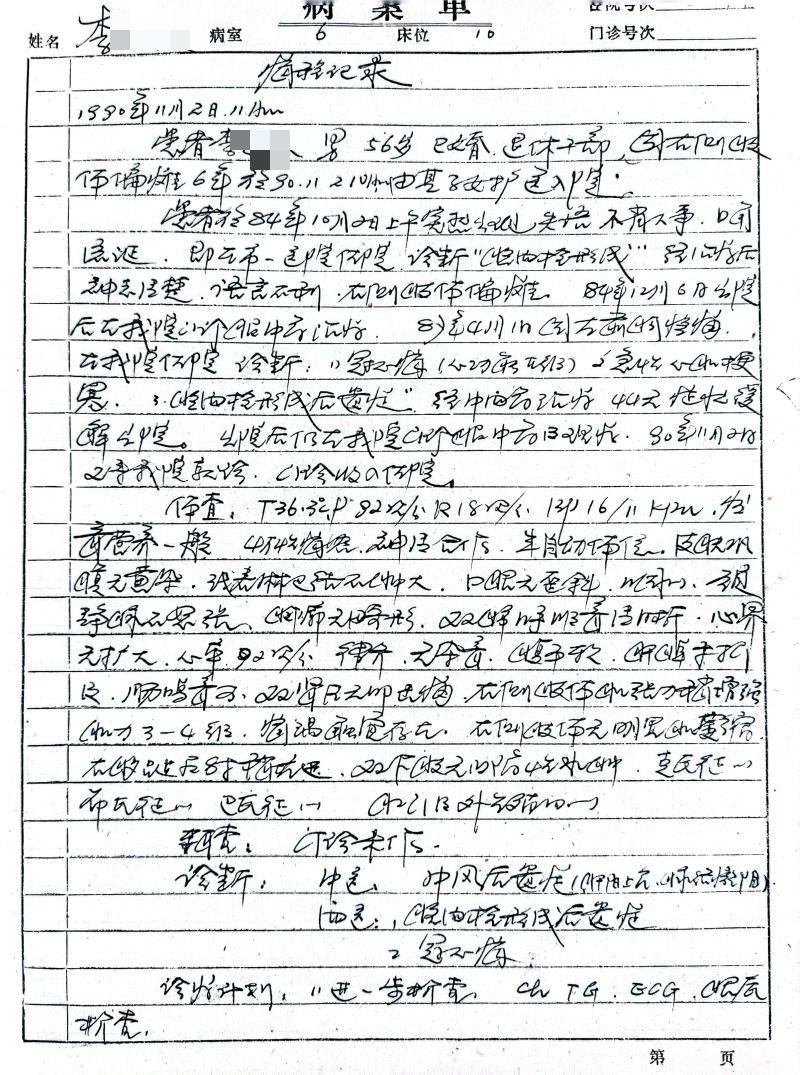 病案单
住院号次
姓名 李 病室 6 床位 10 门诊号次
病程记录
1990年11月2日11Am
患者李 男 56岁 已婚 退休干部,因右侧肢
体偏瘫6年于90.11.2 10Am由其子女护送入院。
患者于84年10月2日上午突然出现失语 不省人事,口角
流涎,即在市一医院住院 诊断“脑血栓形成” 经治疗后
神志清楚,语言不利,右侧肢体偏瘫。84年12月6日出院
后在我院门诊服中药治疗。 年4月1日因左 痛
在我院住院 诊断:1)冠心病(心功能Ⅱ级)2急性心肌梗
塞. 3.“脑血栓形成后遗症” 经中西药治疗44天症状缓
解出院。出院后仍在我院门诊服中药 90年11月2日
又来我院就诊,门诊收入住院。
体查:T36.5℃ P 82次/分 R 18次/分 BP 16/11 Kpa,发
育营养一般 慢性病容,神清合作,半自动体位。皮肤巩
膜无黄染,浅表淋巴结不肿大,口眼无歪斜, 颈
静脉不怒张,胸廓无畸形,双肺呼吸音清晰,心界
无扩大,心率82次/分 律齐,无杂音,腹平软,肝脾未扪
及,肠鸣音可,双肾区无叩击痛,右侧肢体肌张力稍增强
肌力3-4级,痛温触觉存在,右侧肢体无明显肌萎缩
双下肢无凹陷性水肿,克氏征(-)
布氏征(-) 巴氏征(-) 肛门及外 (-)
辅查:门诊未作。
诊断:中医:中风后遗症( )
西医:1 脑血栓形成后遗症
2 冠心病
诊疗计划:1)进一步检查,ch TG.ECG.眼底
检查。
第 页